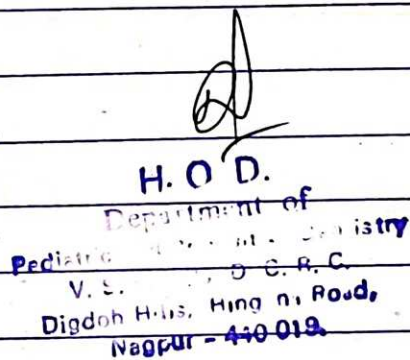 H. O D.
Department of
Pediatric istry
V. S. D C. R. C.
Digdoh Hills, Hingna Road,
Nagpur - 440 019.